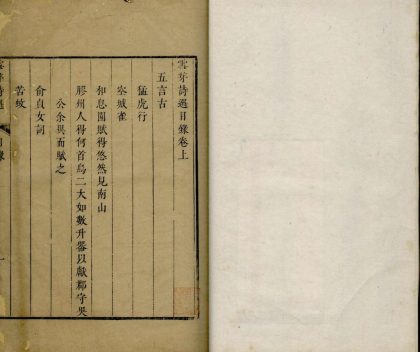 雲芽詩選目錄卷上
五言古
猛虎行
空城雀
和息園賦得悠然見南山
膠州人得何首烏二大如數升器以獻郡守吳
公余異而賦之
俞貞女詞
苦蚊
雲芽詩選
目錄
一